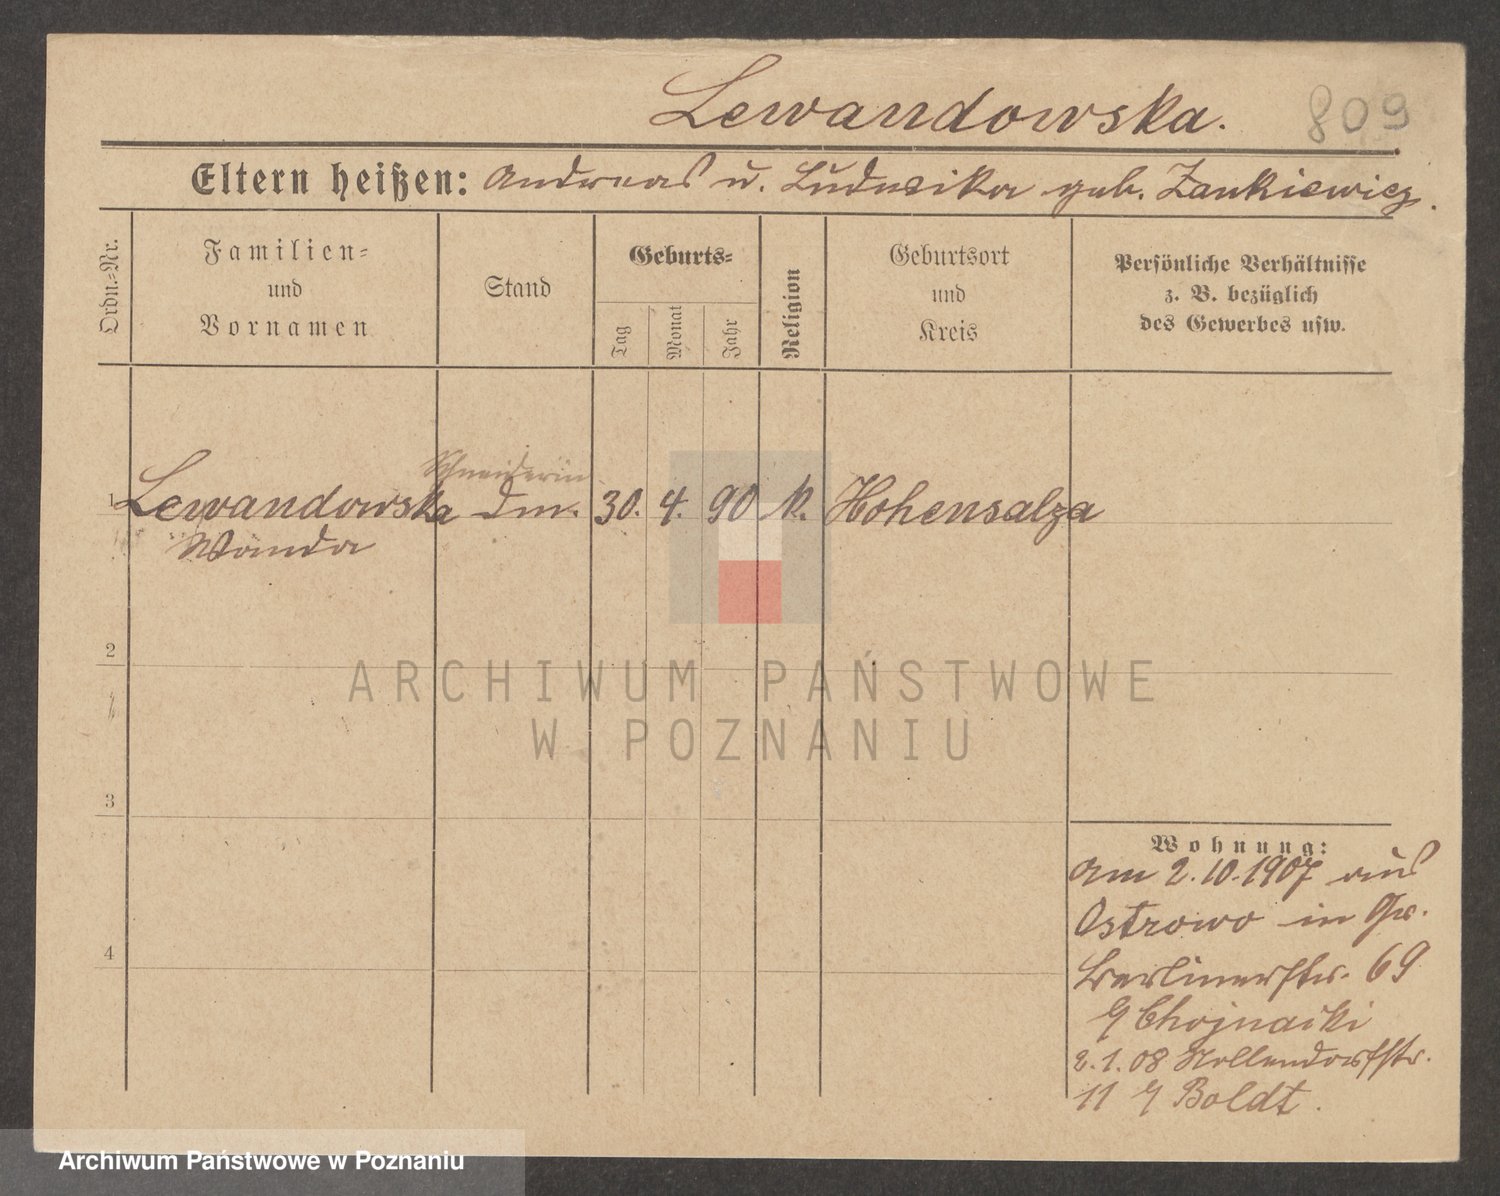 Lewandowska. 809
Eltern heißen: Andreas u. Ludwika geb. Zankiewicz.
Ordn.-Nr.
Familien-
und
Vornamen
Stand
Geburts-
Tag
Monat
Jahr
Religion
Geburtsort
und
Kreis
Persönliche Verhältnisse
z. B. bezüglich
des Gewerbes usw.
Schneiderin
1 Lewandowska Dm. 30. 4. 90 K. Hohensalza
Wanda
2
3
4
ARCHIWUM PAŃSTWOWE
W POZNANIU
Wohnung:
Am 2.10.1907 aus
Ostrowo in Gr.
Berlinerstr. 69
Chojnacki
2.1.08 Nollendorfstr.
11 Boldt.
Archiwum Państwowe w Poznaniu